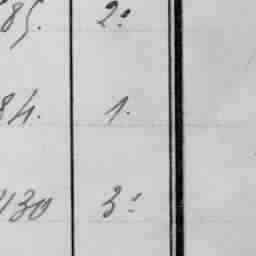 85. 2.
84. 1.
430 3.